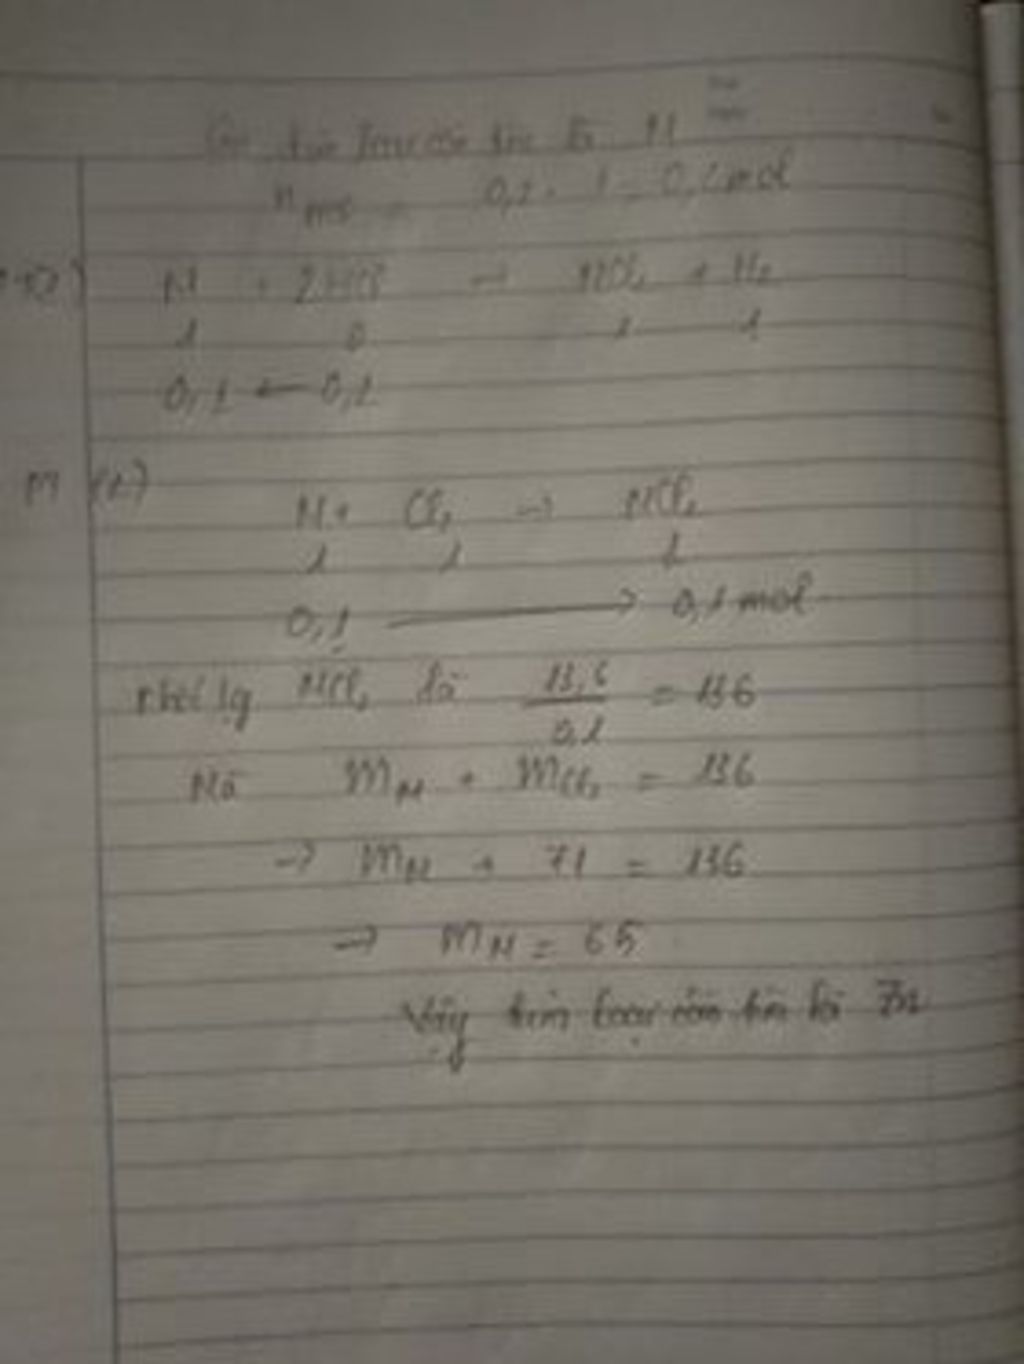 kim loại cần tìm là M
n = 0,2 . 1 = 0,2 mol
M + 2HCl → MCl₂ + H₂
1 2 1 1
0,1 ← 0,2
M + Cl₂ → MCl₂
1 1 1
0,1 → 0,1 mol
Khối lg MCl₂ là 13,6 / 0,1 = 136
Mà M_M + M_Cl₂ = 136
→ M_M + 71 = 136
→ M_M = 65
Vậy kim loại cần tìm là Zn